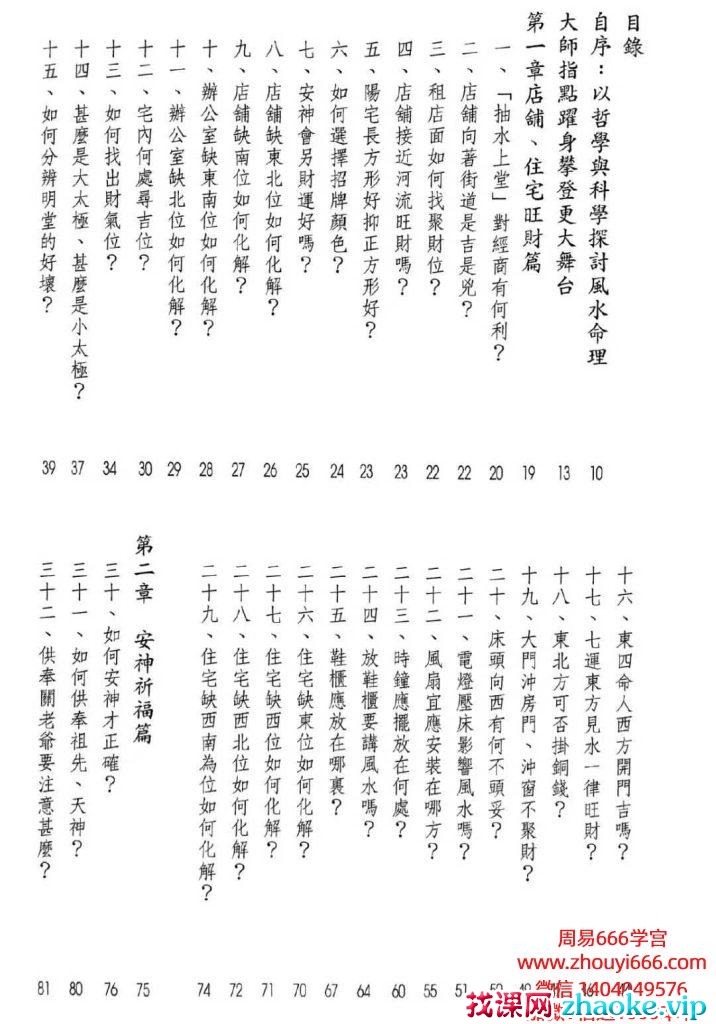 目錄
自序：以哲學與科學探討風水命理 10
大師指點躍身攀登更大舞台 13
第一章店舖、住宅旺財篇 19
一、「抽水上堂」對經商有何利？ 20
二、店舖向著街道是吉是兇？ 22
三、租店面如何找聚財位？ 22
四、店舖接近河流旺財嗎？ 23
五、陽宅長方形好抑正方形好？ 23
六、如何選擇招牌顏色？ 24
七、安神會另財運好嗎？ 25
八、店舖缺東北位如何化解？ 26
九、店舖缺南位如何化解？ 27
十、辦公室缺東南位如何化解？ 28
十一、辦公室缺北位如何化解？ 29
十二、宅內何處尋吉位？ 30
十三、如何找出財氣位？ 34
十四、甚麼是大太極、甚麼是小太極？ 37
十五、如何分辨明堂的好壞？ 39
十六、東四命人西方開門吉嗎？
十七、七運東方見水一律旺財？
十八、東北方可否掛銅錢？
十九、大門沖房門、沖窗不聚財？
二十、床頭向西有何不頭妥？
二十一、電燈壓床影響風水嗎？ 51
二十二、風扇宜應安裝在哪方？ 55
二十三、時鐘應擺放在何處？ 60
二十四、放鞋櫃要講風水嗎？ 64
二十五、鞋櫃應放在哪裏？ 67
二十六、住宅缺東位如何化解？ 70
二十七、住宅缺西位如何化解？ 71
二十八、住宅缺西北位如何化解？ 72
二十九、住宅缺西南為位如何化解？ 74
第二章 安神祈福篇 75
三十、如何安神才正確？ 76
三十一、如何供奉祖先、天神？ 80
三十二、供奉關老爺要注意甚麼？ 81
周易666学宫
www.zhouyi666.com
微信 1404049576
找课网zhaoke.vip